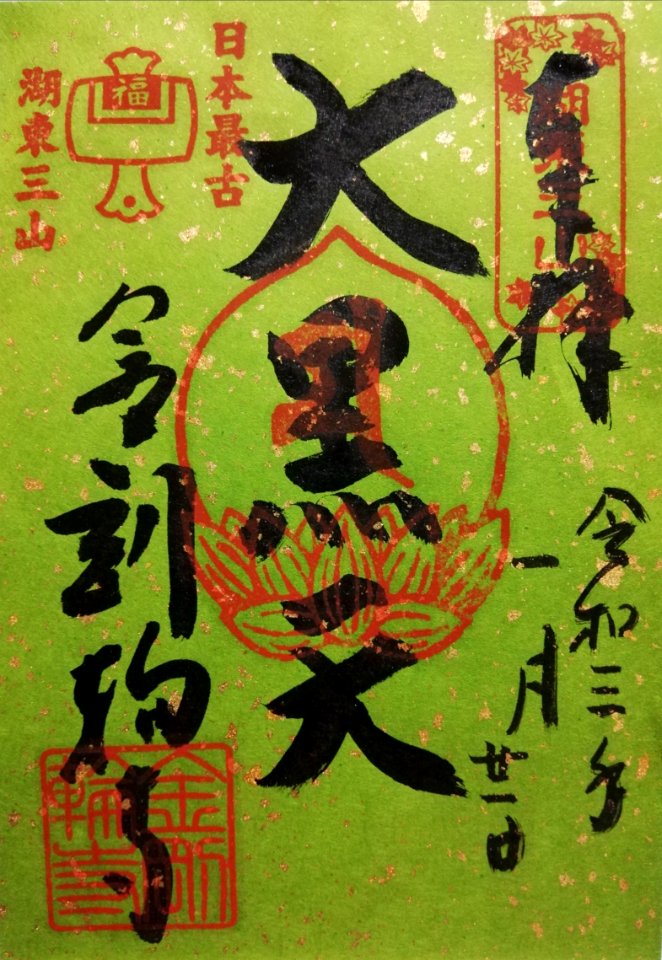 奉拝
湖東三山
令和三年
一月
廿一日
大黒天
日本最古
福
湖東三山
金剛輪寺
金剛
輪寺